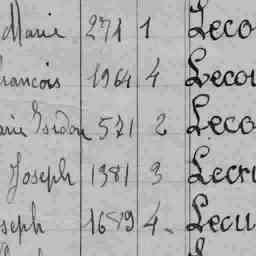 Marie 271 1 Leco
rancois 1964 4 Lecou
arie Isidore 521 2 Leco
Joseph 1381 3 Lecr
seph 1689 4 Lecu